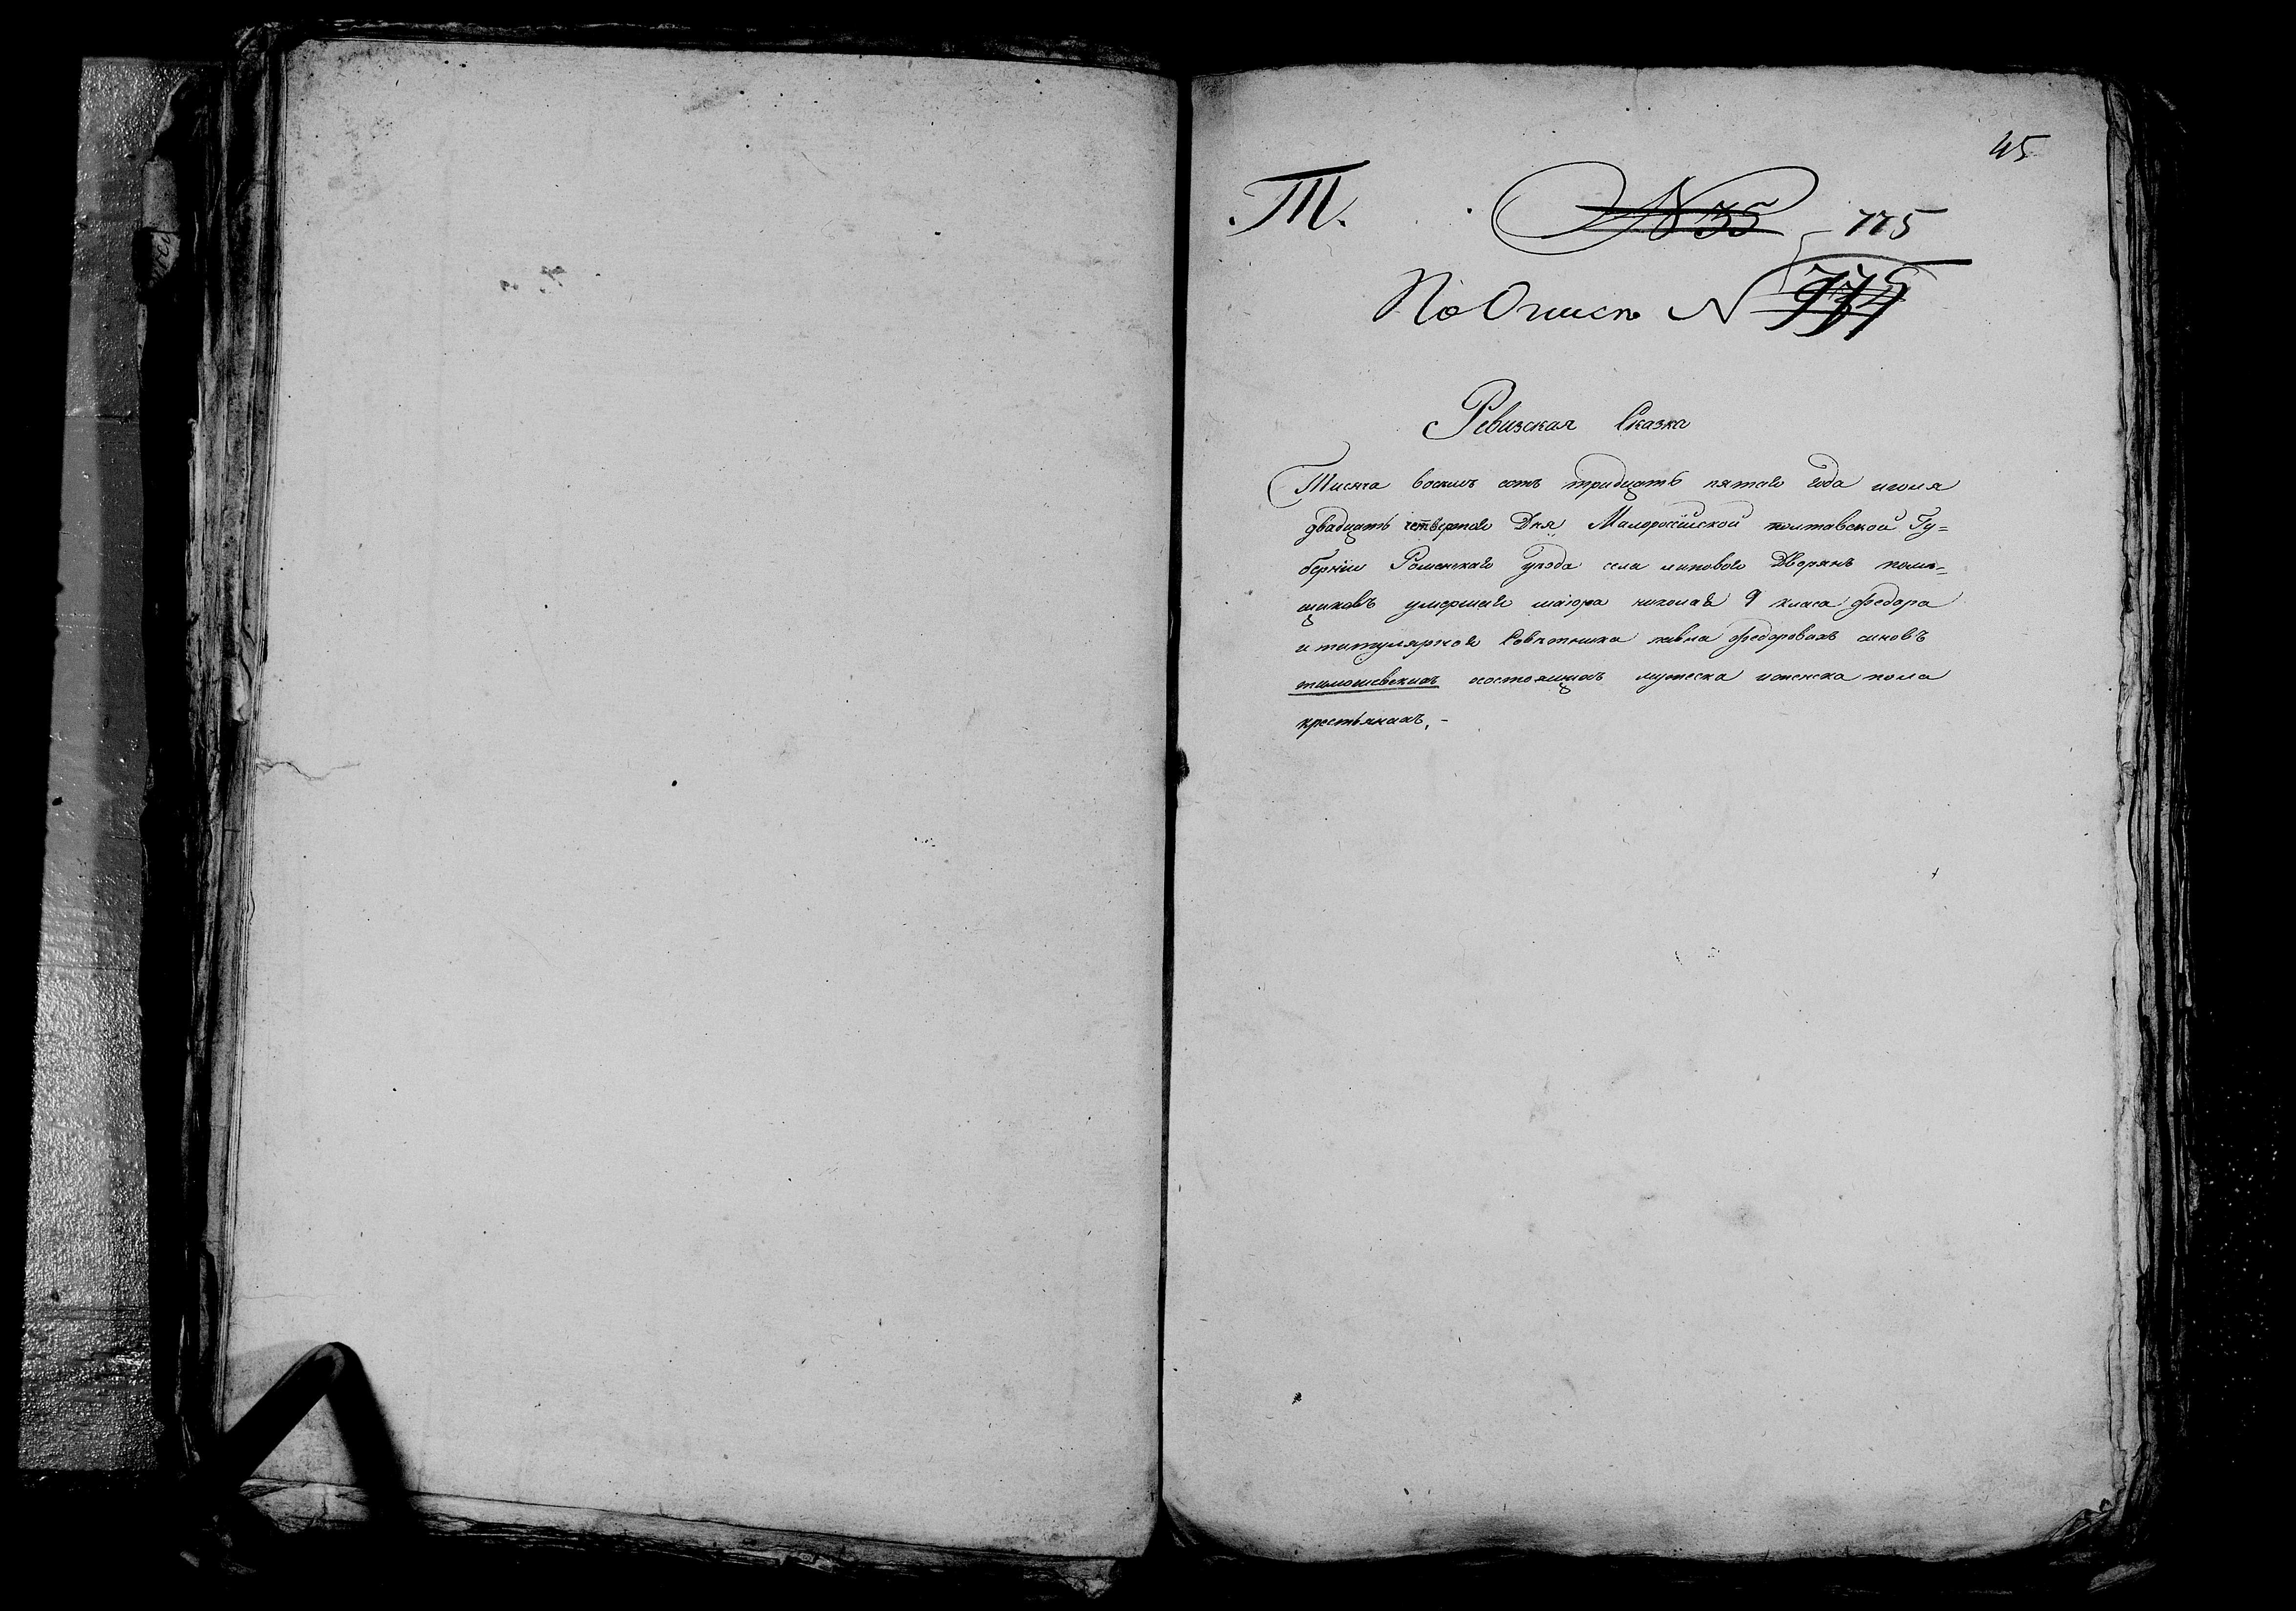 45
.Т. N 35 775
По Описи N
Ревизская Сказка
Тисяча восемъ сотъ тридцать пятого года июля
двадцать четвертого Дня Малороссійской полтавской Гу=
берніи Роменского уезда села липового Дворянъ поме=
щиковъ умершаго маіора николая 9 класа федора
и титулярного Советника павла федоровихъ синовъ
тимошевскихъ осостоящихъ мужеска иженска пола
крестьянахъ, -